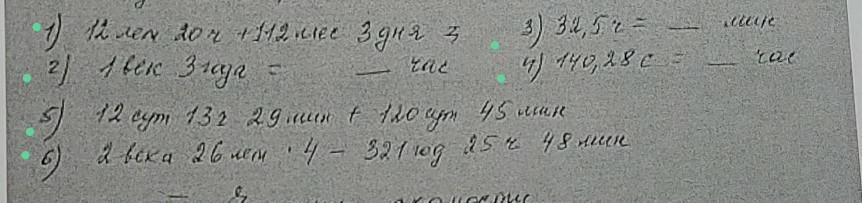 1) 12 лет 20 ч + 112 мес 3 дня =
3) 32,5 ч = __ мин
2) 1 век 3 года = __ час
4) 140,28 с = __ час
5) 12 сут 13 ч 29 мин + 120 сут 45 мин
6) 2 века 26 лет · 4 - 321 год 25 ч 48 мин